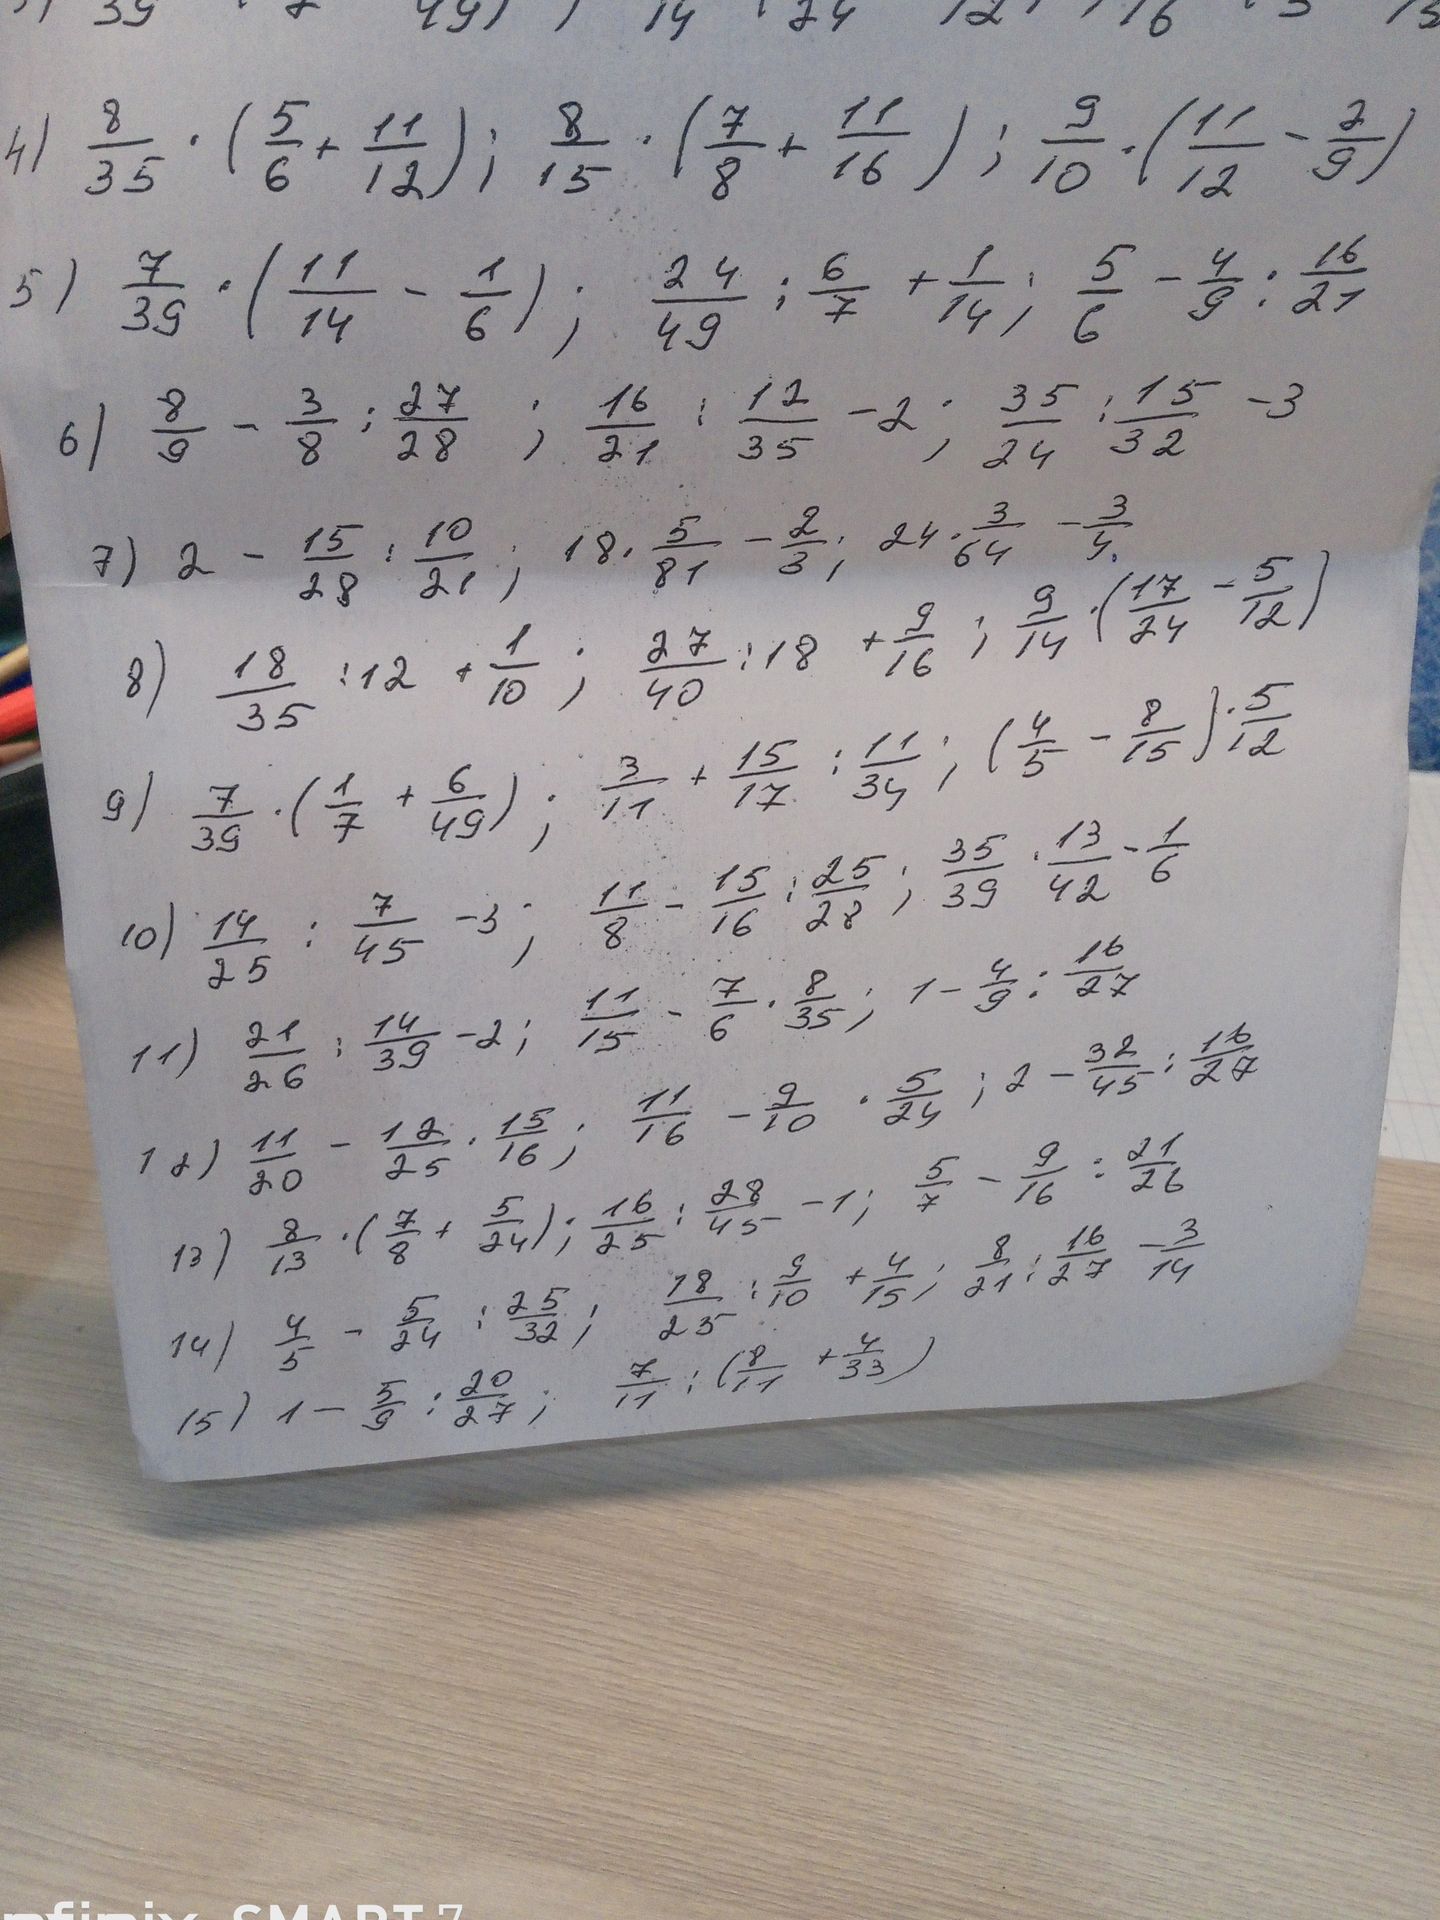 4) 8/35 · (5/6 + 11/12); 8/15 · (7/8 + 11/16); 9/10 · (11/12 - 2/9)
5) 7/39 · (11/14 - 1/6); 24/49 : 6/7 + 1/14; 5/6 - 4/9 : 16/21
6) 8/9 - 3/8 : 27/28; 16/21 : 12/35 - 2; 35/24 : 15/32 - 3
7) 2 - 15/28 : 10/21; 18 · 5/81 - 2/3; 24 · 3/64 - 3/4
8) 18/35 : 12 + 1/10; 27/40 : 18 + 9/16; 9/14 · (17/24 - 5/12)
9) 7/39 · (1/7 + 6/49); 3/11 + 15/17 : 11/34; (4/5 - 8/15) · 5/12
10) 14/25 : 7/45 - 3; 11/8 - 15/16 : 25/28; 35/39 · 13/42 - 1/6
11) 21/26 : 14/39 - 2; 11/15 - 7/6 · 8/35; 1 - 4/9 : 16/27
12) 11/20 - 12/25 · 15/16; 11/16 - 9/10 · 5/24; 2 - 32/45 : 16/27
13) 8/13 · (7/8 + 5/24); 16/25 : 28/45 - 1; 5/7 - 9/16 : 21/26
14) 4/5 - 5/24 : 25/32; 18/25 : 9/10 + 4/15; 8/21 : 16/27 - 3/14
15) 1 - 5/9 : 20/27; 7/11 : (8/11 + 4/33)
SMART 7